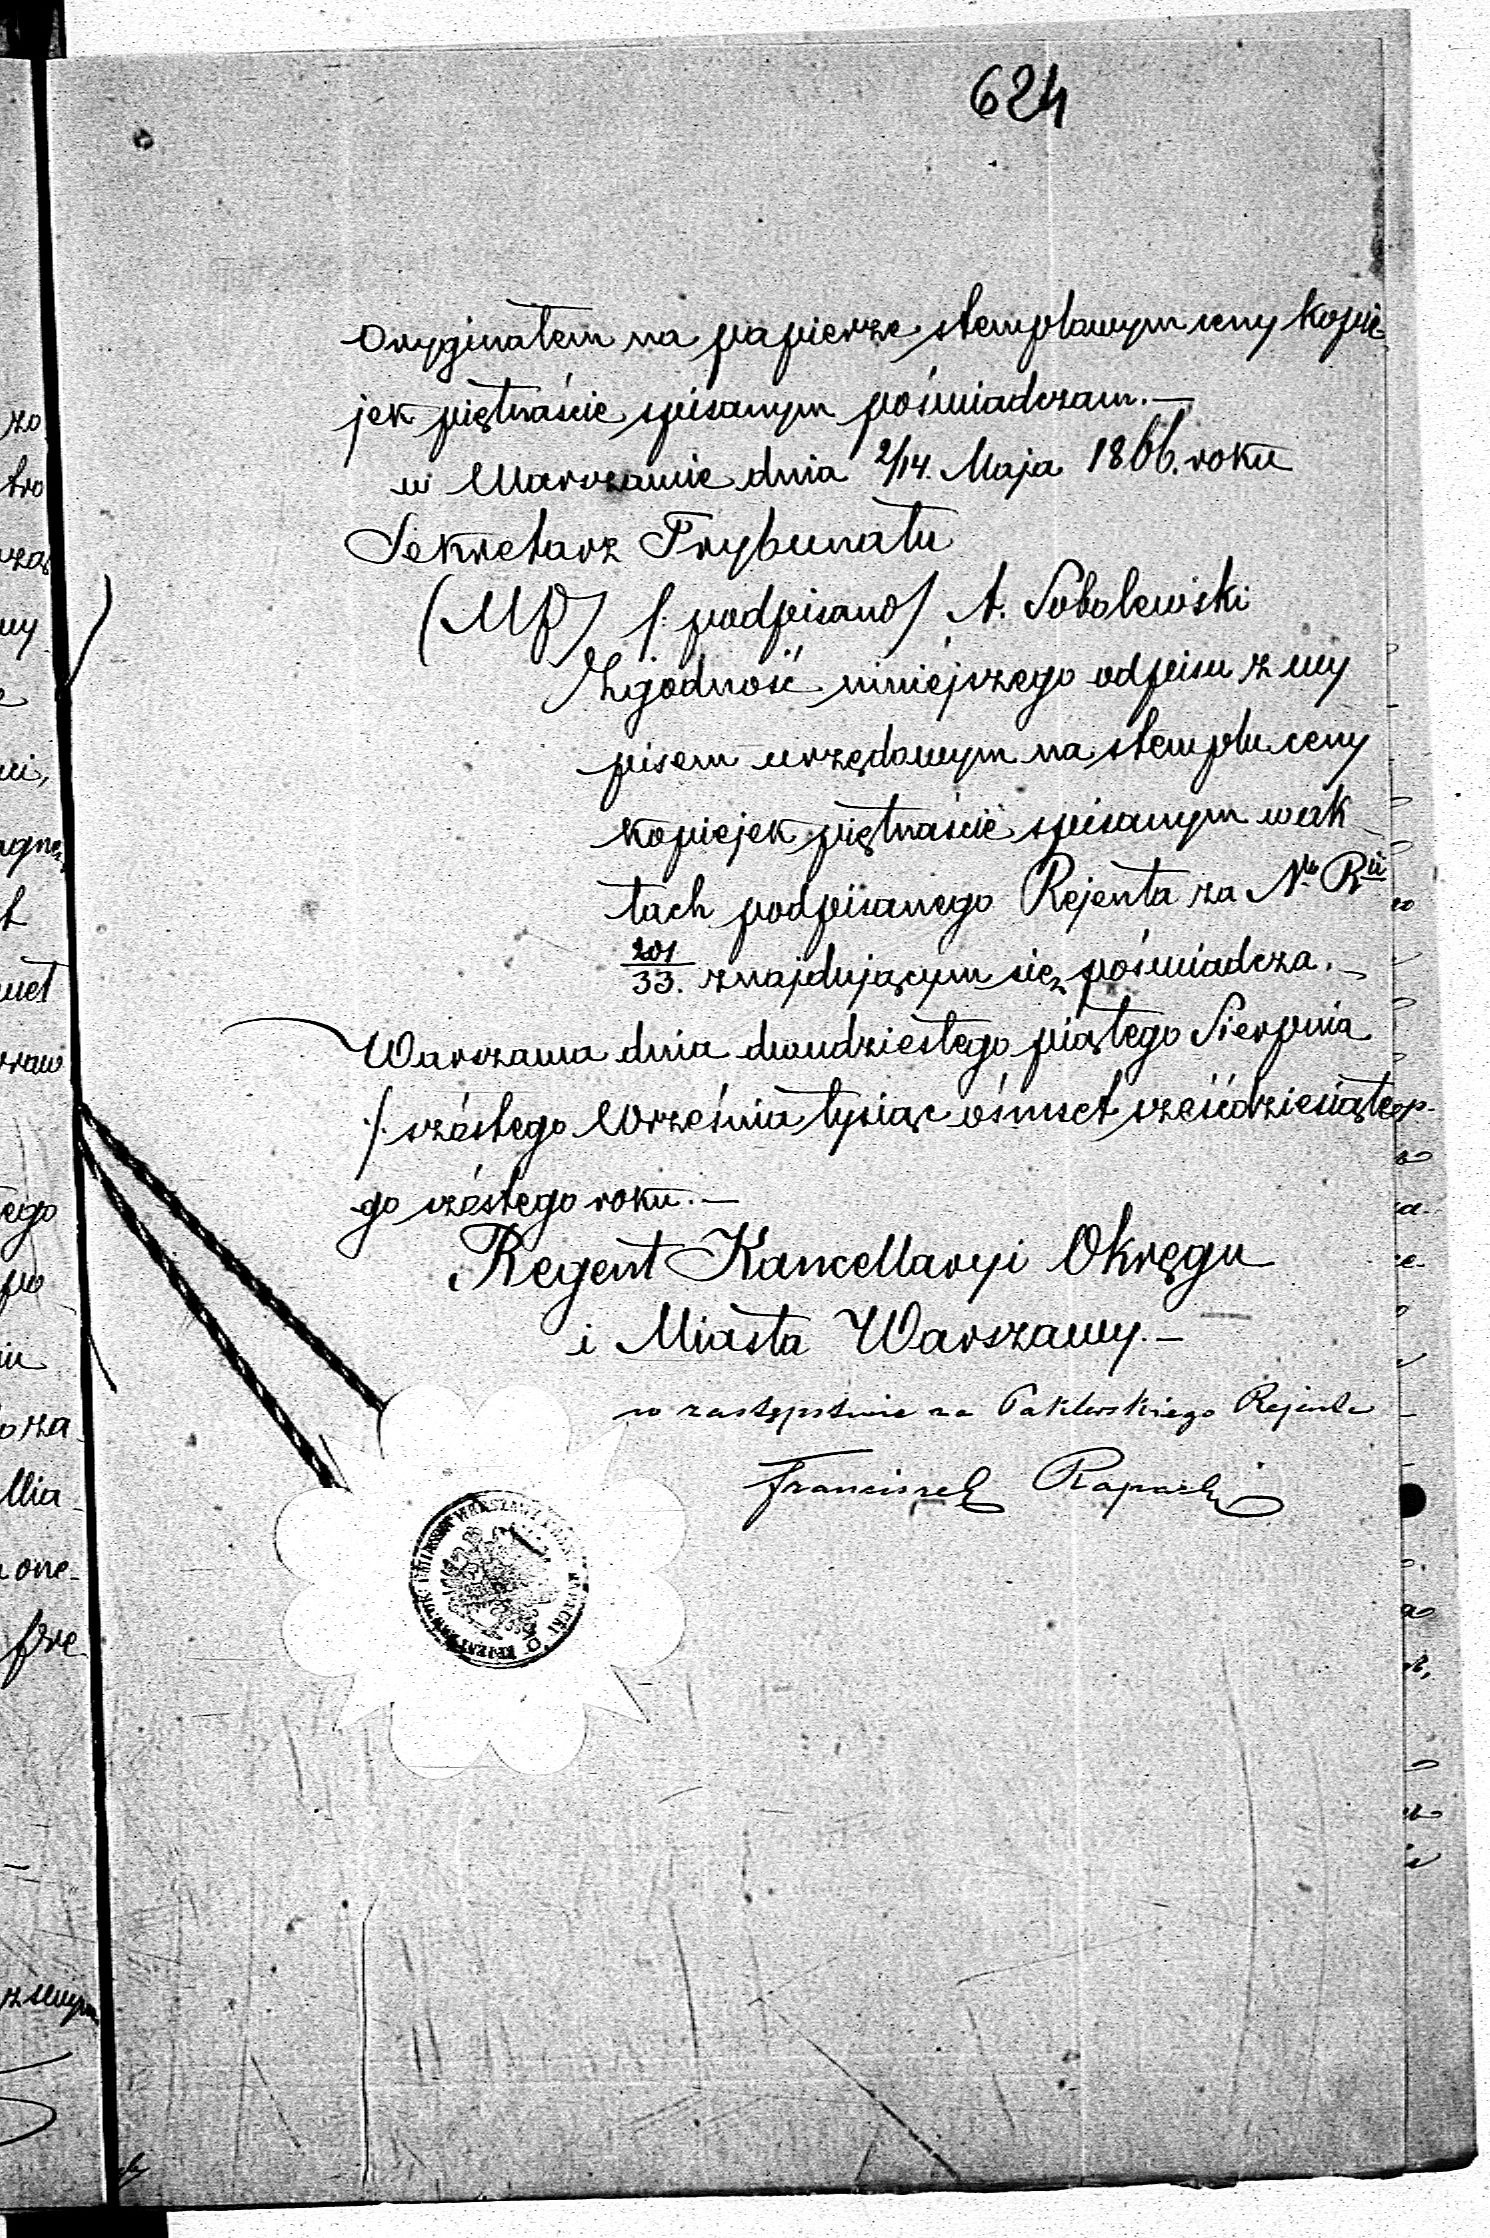 624
oryginałem na papierze stemplowym ceny kopie
jek piętnaście spisanym poświadczam.—
w Warszawie dnia 2/14. Maja 1866. roku
Sekretarz Trybunału
(MP) /: podpisano/ A. Sobolewski
Zgodność niniejszego odpisu z wy
pisem urzędowym na stemplu ceny
kopiejek piętnaście spisanym w ak
tach podpisanego Rejenta za No. Ru
201/33. znajdującym się, poświadcza.—
Warszawa dnia dwudziestego piątego Sierpnia
/. szóstego Września tysiąc ośmset sześćdziesiąte
go szóstego roku.—
Regent Kancellaryi Okręgu
i Miasta Warszawy.—
w zastępstwie za Paklerskiego Rejenta
Franciszek